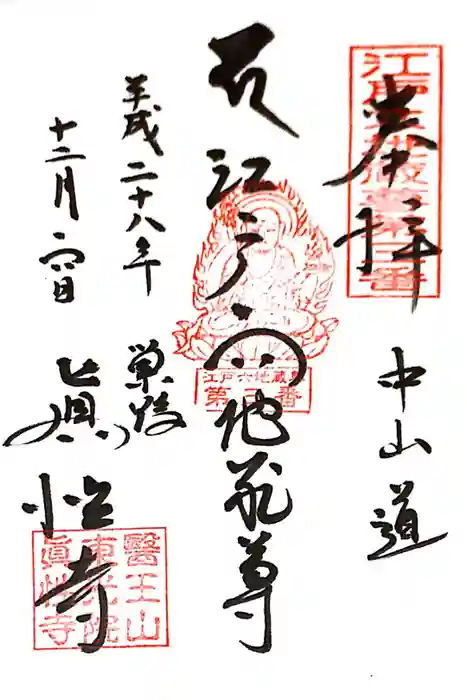 奉拝
中山道
江戸六地蔵尊
江戸六地蔵尊
第三番
平成二十八年
十二月 日
巣鴨
眞性寺
醫王山
東光院
眞性寺